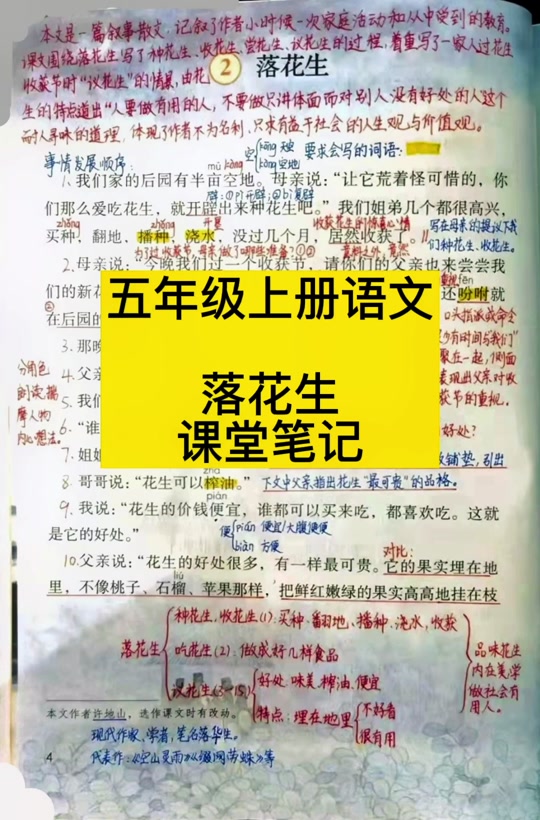 本文是一篇叙事散文,记叙了作者小时候一次家庭活动和从中受到的教育。
课文围绕落花生写了种花生、收花生、尝花生、议花生的过程,着重写了一家人过花生
收获节时"议花生"的情景,由花
② 落花生
生的特点道出"人要做有用的人,不要做只讲体面而对别人没有好处的人"这个
耐人寻味的道理,体现了作者不为名利,只求有益于社会的人生观与价值观。
事情发展顺序:
空
kòng 空地
要求会写的词语:
mǔ kòng
1.我们家的后园有半亩空地。母亲说:"让它荒着怪可惜的,你
们那么爱吃花生,就开辟出来种花生吧。"我们姐弟几个都很高兴,
收获花生的惊喜心情
买种,翻地,播种,浇水,没过几个月,居然收获了。
写在母亲的提议下我
们种花生、收花生。
2.母亲说:"今晚我们过一个收获节,请你们的父亲也来尝尝我
fēn
们的新花
还吩咐就
在后园的
口头指派或命令
3.那晚
少有时间与我们"
聚在一起,侧面
表现出父亲对收
获节的重视。
分角色
朗读,揣
摩人物
内心想法。
4.父亲
5.我们
6."谁
好处?
7.姐姐
铺垫,引出
zhà
8.哥哥说:"花生可以榨油。"
下文中父亲指出花生"最可贵"的品格。
pián
9.我说:"花生的价钱便宜,谁都可以买来吃,都喜欢吃。这就
是它的好处。"
便
pián 便宜/大腹便便
biàn 方便
对比:
10.父亲说:"花生的好处很多,有一样最可贵。它的果实埋在地
liú
里,不像桃子、石榴、苹果那样,把鲜红嫩绿的果实高高地挂在枝
落花生
种花生、收花生(1):买种、翻地、播种、浇水、收获
吃花生(2):做成好几样食品
议花生(3-15)
好处:味美、榨油、便宜
特点:埋在地里
不好看
很有用
品味花生
内在美,学
做社会有
用人。
本文作者许地山,选作课文时有改动。
现代作家、学者,笔名落华生。
代表作:《空山灵雨》《缀网劳蛛》等
4
五年级上册语文
落花生
课堂笔记